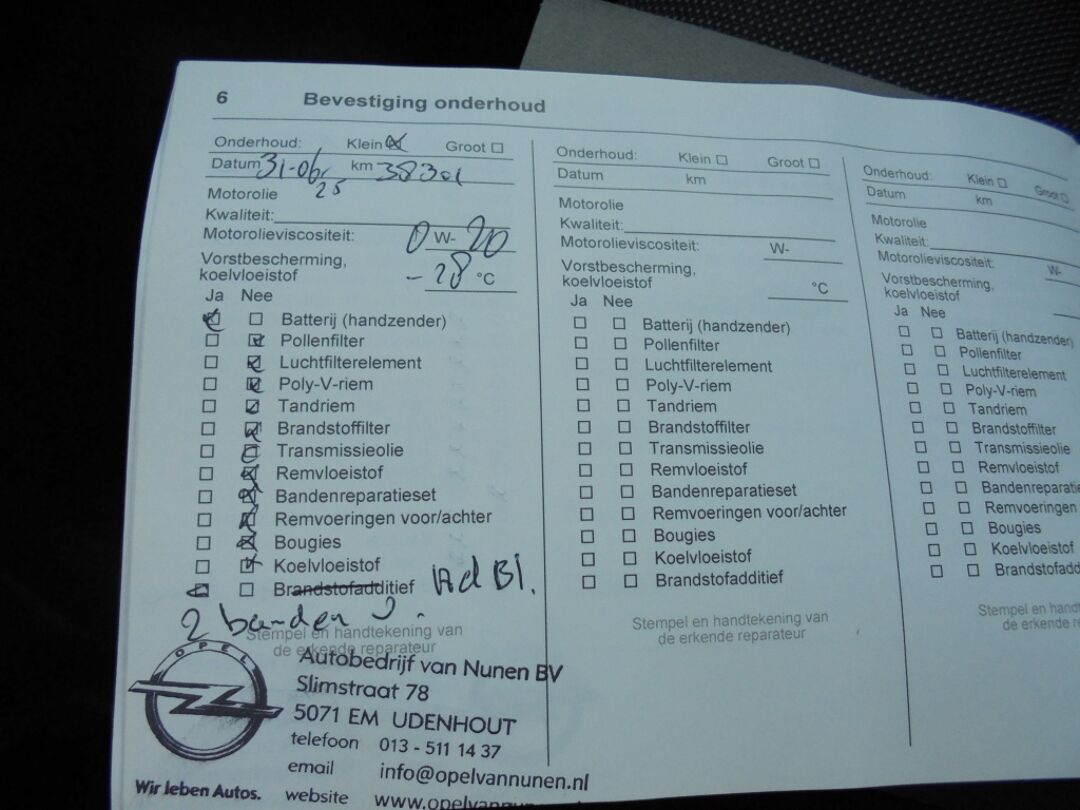 6 Bevestiging onderhoud
Onderhoud: Klein Groot
Datum 31-06 km 38301
25
Motorolie
Kwaliteit:
Motorolieviscositeit: 0 W- 20
Vorstbescherming,
koelvloeistof -28 °C
Ja Nee
Batterij (handzender)
Pollenfilter
Luchtfilterelement
Poly-V-riem
Tandriem
Brandstoffilter
Transmissieolie
Remvloeistof
Bandenreparatieset
Remvoeringen voor/achter
Bougies
Koelvloeistof
Brandstofadditief Ad Bl.
2 banden
Stempel en handtekening van
de erkende reparateur
OPEL
Autobedrijf van Nunen BV
Slimstraat 78
5071 EM UDENHOUT
telefoon 013 - 511 14 37
email info@opelvannunen.nl
Wir leben Autos. website www.opelvannunen
Onderhoud: Klein Groot
Datum km
Motorolie
Kwaliteit:
Motorolieviscositeit: W-
Vorstbescherming,
koelvloeistof °C
Ja Nee
Batterij (handzender)
Pollenfilter
Luchtfilterelement
Poly-V-riem
Tandriem
Brandstoffilter
Transmissieolie
Remvloeistof
Bandenreparatieset
Remvoeringen voor/achter
Bougies
Koelvloeistof
Brandstofadditief
Stempel en handtekening van
de erkende reparateur
Onderhoud: Klein Groot
Datum km
Motorolie
Kwaliteit:
Motorolieviscositeit: W-
Vorstbescherming,
koelvloeistof
Ja Nee
Batterij (handzender)
Pollenfilter
Luchtfilterelement
Poly-V-riem
Tandriem
Brandstoffilter
Transmissieolie
Remvloeistof
Bandenreparatie
Remvoeringen
Bougies
Koelvloeistof
Brandstofadd
Stempel en hand
de erkende re